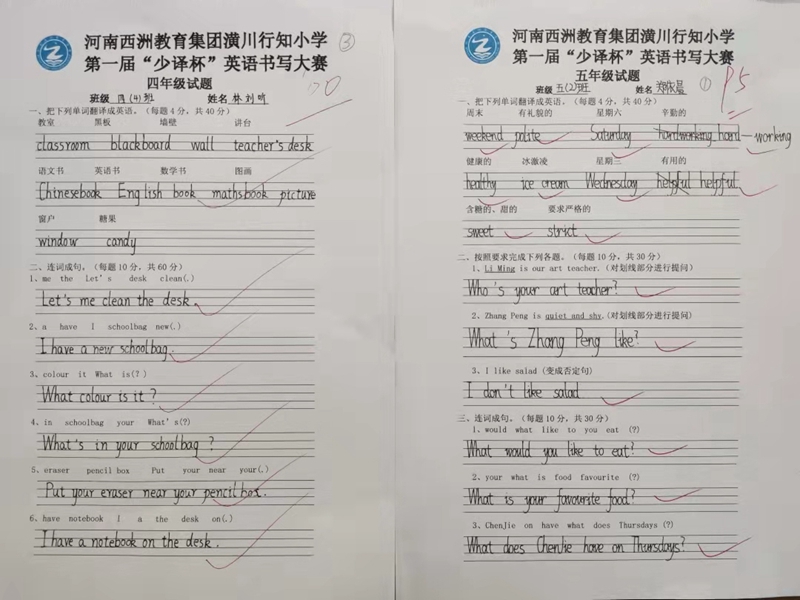 河南西洲教育集团潢川行知小学
第一届“少译杯”英语书写大赛
四年级试题
③
班级 四(4)班 姓名 林刘昕
一、把下列单词翻译成英语。（每题4分，共40分）
教室 黑板 墙壁 讲台
classroom blackboard wall teacher's desk
语文书 英语书 数学书 图画
Chinesebook English book mathsbook picture
窗户 糖果
window candy
二、连词成句。（每题10分，共60分）
1、me the Let's desk clean(.)
Let's me clean the desk.
2、a have I schoolbag new(.)
I have a new schoolbag.
3、colour it What is(?)
What colour is it?
4、in schoolbag your What's(?)
What's in your schoolbag?
5、eraser pencil box Put your near your(.)
Put your eraser near your pencil box.
6、have notebook I a the desk on(.)
I have a notebook on the desk.
河南西洲教育集团潢川行知小学
第一届“少译杯”英语书写大赛
五年级试题
①
班级 五(2)班 姓名
一、把下列单词翻译成英语。（每题4分，共40分）
周末 有礼貌的 星期六 辛勤的
weekend polite Saturday hardworking hard-working
健康的 冰激凌 星期三 有用的
healthy ice cream Wednesday helpful helpful
含糖的、甜的 要求严格的
sweet strict
二、按照要求完成下列各题。（每题10分，共30分）
1、Li Ming is our art teacher.(对划线部分进行提问)
Who's your art teacher?
2、Zhang Peng is quiet and shy.(对划线部分进行提问)
What's Zhang Peng like?
3、I like salad (变成否定句)
I don't like salad
三、连词成句。（每题10分，共30分）
1、would what like to you eat (?)
What would you like to eat?
2、your what is food favourite (?)
What is your favourite food?
3、ChenJie on have what does Thursdays (?)
What does ChenJie have on Thursdays?